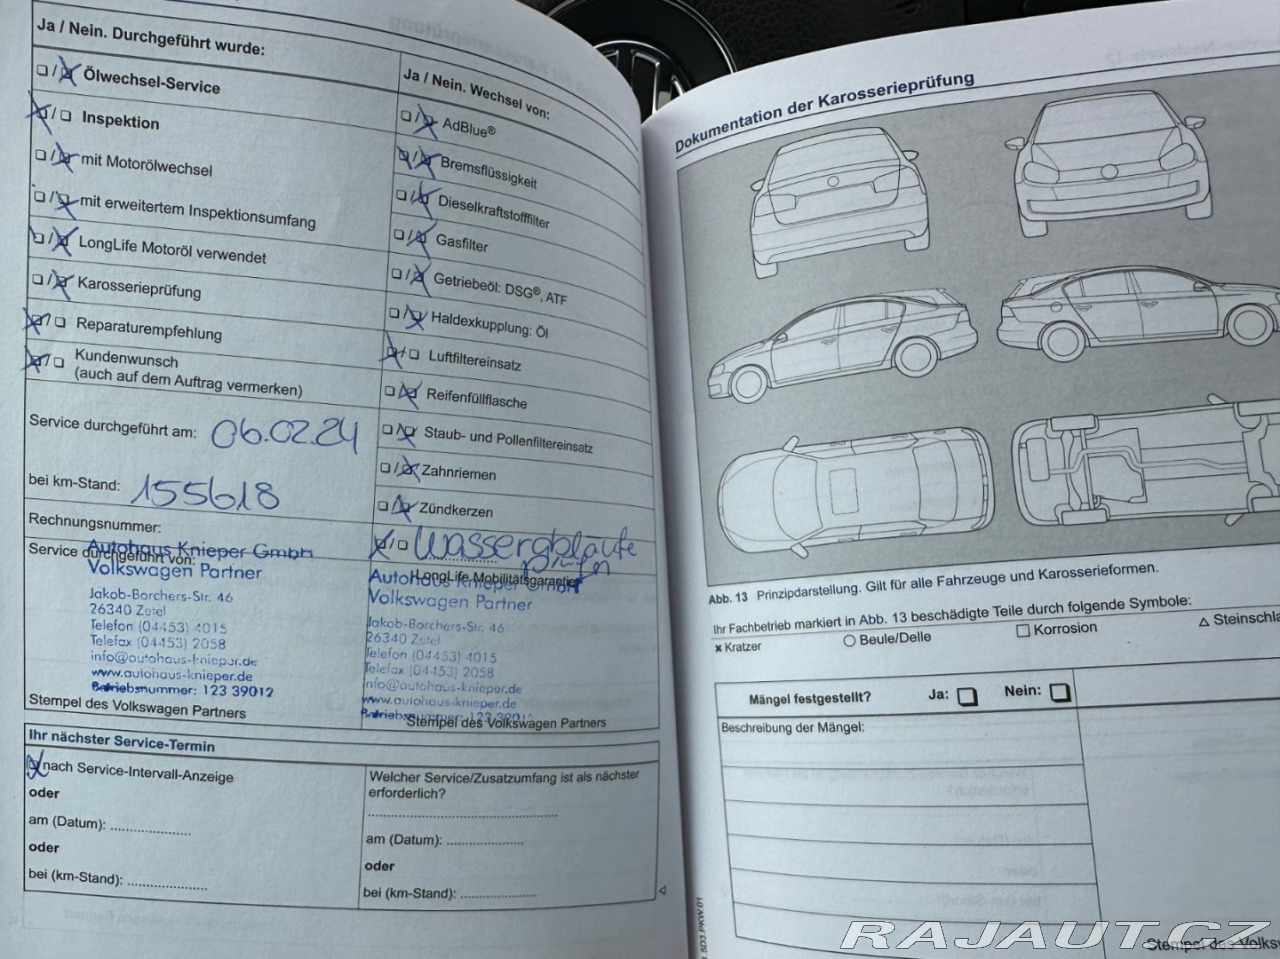 Ja / Nein. Durchgeführt wurde:
Ölwechsel-Service
Inspektion
mit Motorölwechsel
mit erweitertem Inspektionsumfang
LongLife Motoröl verwendet
Karosserieprüfung
Reparaturempfehlung
Kundenwunsch
(auch auf dem Auftrag vermerken)
Service durchgeführt am: 06.02.24
bei km-Stand: 155618
Rechnungsnummer:
Service durchgeführt von:
Autohaus Knieper GmbH
Volkswagen Partner
Jakob-Borchers-Str. 46
26340 Zetel
Telefon (04453) 4015
Telefax (04453) 2058
info@autohaus-knieper.de
www.autohaus-knieper.de
Betriebsnummer: 123 39012
Stempel des Volkswagen Partners
Ja / Nein. Wechsel von:
AdBlue®
Bremsflüssigkeit
Dieselkraftstofffilter
Gasfilter
Getriebeöl: DSG®, ATF
Haldexkupplung: Öl
Luftfiltereinsatz
Reifenfüllflasche
Staub- und Pollenfiltereinsatz
Zahnriemen
Zündkerzen
Wasserabläufe
prüfen
LongLife Mobilitätsgarantie
Autohaus Knieper GmbH
Volkswagen Partner
Jakob-Borchers-Str. 46
26340 Zetel
Telefon (04453) 4015
Telefax (04453) 2058
info@autohaus-knieper.de
www.autohaus-knieper.de
Betriebsnummer: 123 39012
Stempel des Volkswagen Partners
Ihr nächster Service-Termin
nach Service-Intervall-Anzeige
oder
am (Datum):
oder
bei (km-Stand):
Welcher Service/Zusatzumfang ist als nächster
erforderlich?
am (Datum):
oder
bei (km-Stand):
Dokumentation der Karosserieprüfung
Abb. 13 Prinzipdarstellung. Gilt für alle Fahrzeuge und Karosserieformen.
Ihr Fachbetrieb markiert in Abb. 13 beschädigte Teile durch folgende Symbole:
Kratzer Beule/Delle Korrosion Steinschla
Mängel festgestellt? Ja: Nein:
Beschreibung der Mängel:
Stempel des Volks
RAJAUT.CZ